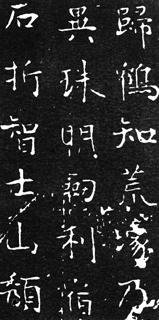 歸鶴知荒塚乃
異珠明劒利伯
石折智士山頹